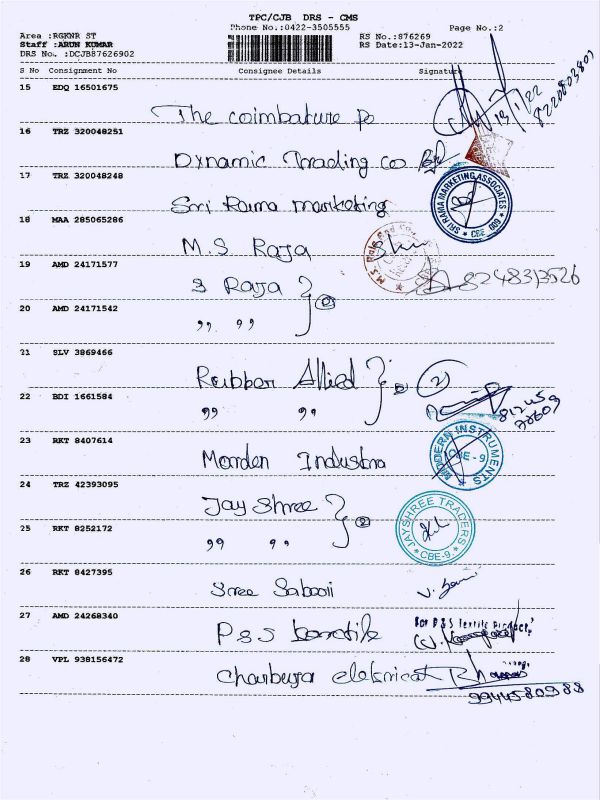 TPC/CJB DRS - CMS
Phone No.:0422-3505555 Page No.:2
Area :RGKNR ST RS No.:876269
Staff :ARUN KUMAR RS Date:13-Jan-2022
DRS No. :DCJB87626902
S No Consignment No Consignee Details Signature
15 EDQ 16501675
The coimbature Po 13/1/22 8220803809
16 TRZ 320048251
Dynamic Trading Co
17 TRZ 320048248
Sri Rama marketing SRI RAMA MARKETING ASSOCIATES CBE 009
18 MAA 285065286
M.S Raja
19 AMD 24171577
S Raja } ② 8248313526
20 AMD 24171542
,, ,,
21 SLV 3869466
Rubber Allied } ② ②
22 BDI 1661584
,, ,, 81245
23 RKT 8407614
Morden Industra MODERN INSTRUMENTS CBE-9
24 TRZ 42393095
Jay Shree } ② JAYSHREE TRADERS CBE-9
25 RKT 8252172
,, ,,
26 RKT 8427395
Shree Sabari
27 AMD 24268340
P&S For P&S Textile Product
28 VPL 938156472
9944580988